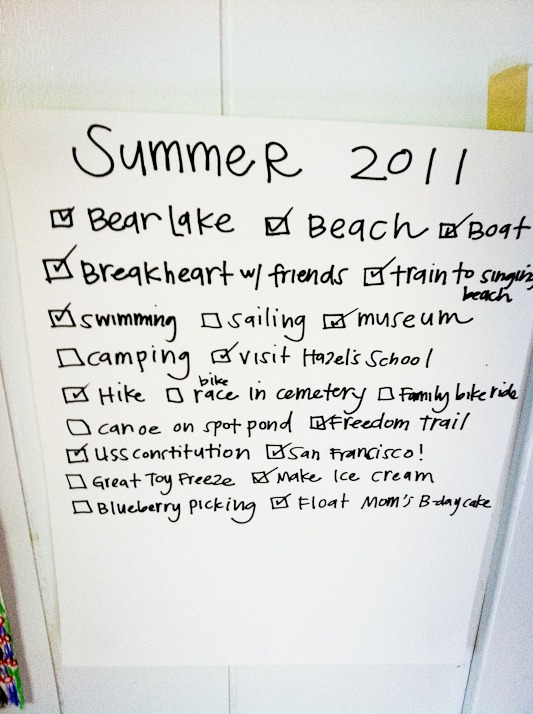 Summer 2011
☑ Bear lake ☑ Beach ☑ Boat
☑ Breakheart w/ friends ☑ train to singing beach
☑ swimming ☐ sailing ☑ museum
☐ camping ☑ visit Hazel's School
☑ Hike ☐ bike race in cemetery ☐ Family bike ride
☐ canoe on spot pond ☑ Freedom Trail
☑ USS constitution ☑ San Francisco!
☐ Great Toy Freeze ☑ Make Ice cream
☐ Blueberry Picking ☑ Float Mom's B-day cake